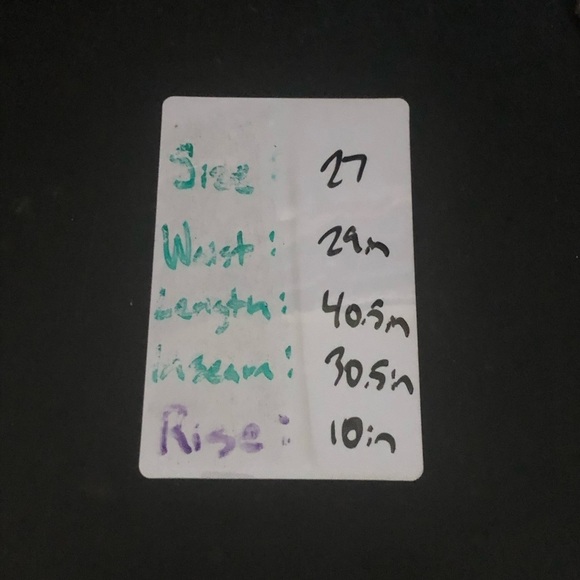 Size: 27
Waist: 29in
Length: 40.5in
Inseam: 30.5in
Rise: 10in